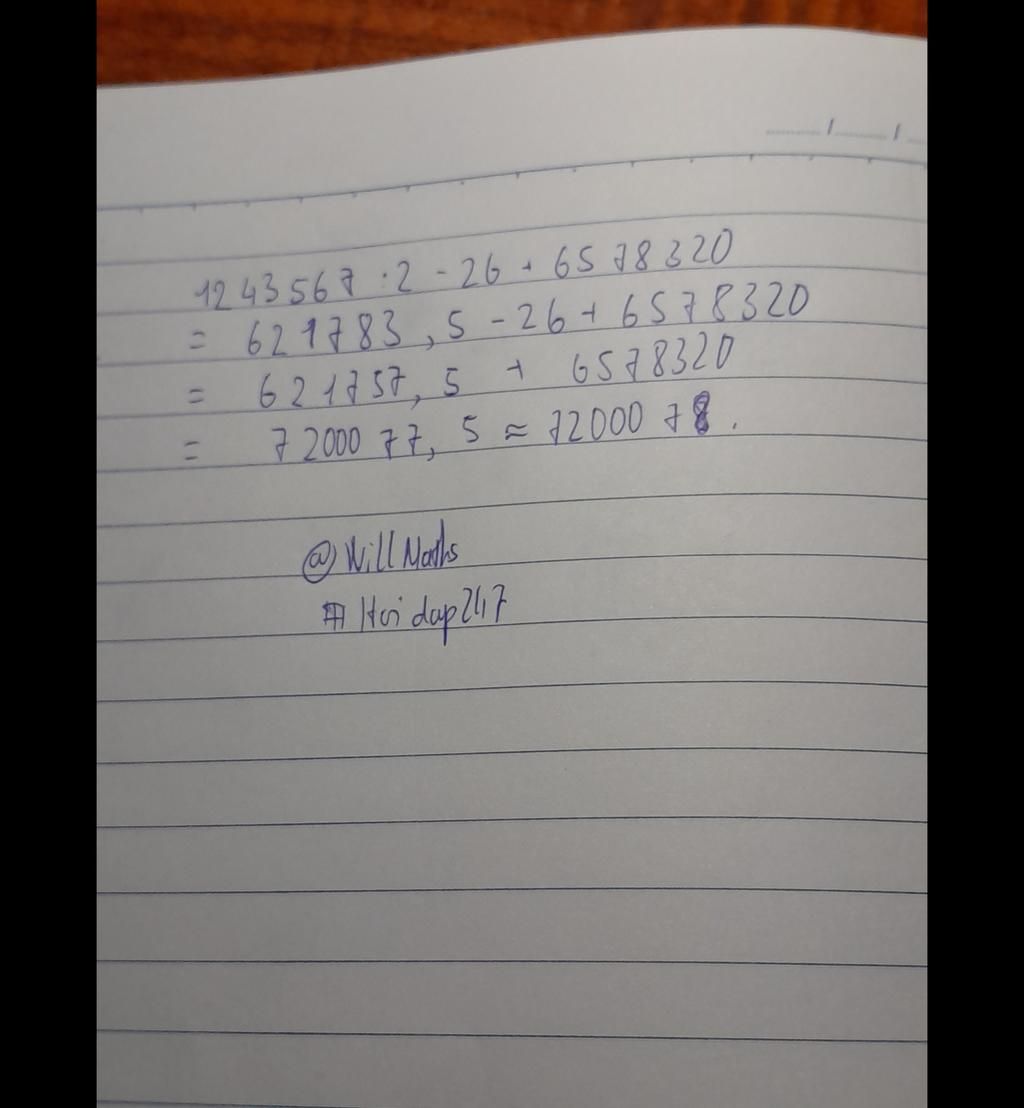 1243567 : 2 - 26 + 6578320
= 621783,5 - 26 + 6578320
= 621757,5 + 6578320
= 7200077,5 ≈ 7200078.
@WillMaths
#Hoidap247